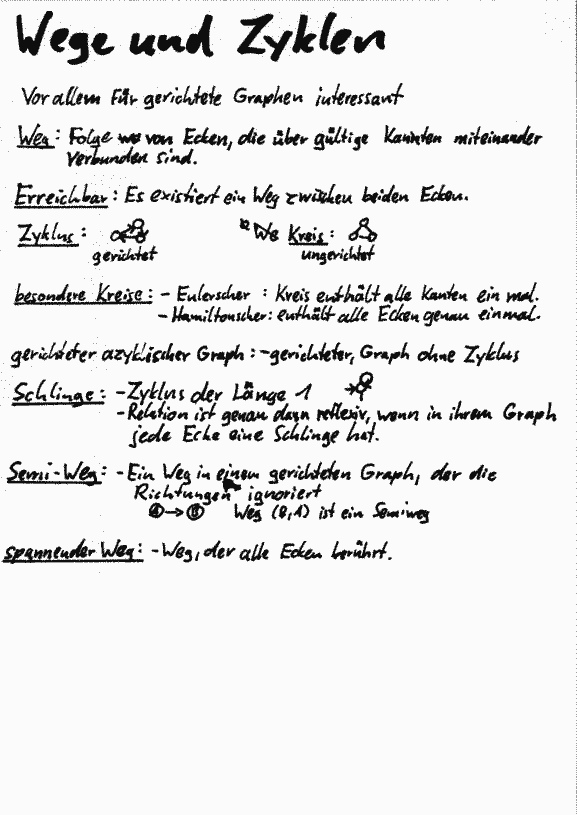 Wege und Zyklen
Vor allem für gerichtete Graphen interessant
Weg: Folge von Ecken, die über gültige Kannten miteinander
verbunden sind.
Erreichbar: Es existiert ein Weg zwischen beiden Ecken.
Zyklus: Kreis:
gerichtet ungerichtet
besondere Kreise: - Eulerscher : Kreis enthält alle Kanten ein mal.
- Hamiltonscher: enthält alle Ecken genau einmal.
gerichteter azyklischer Graph: - gerichteter, Graph ohne Zyklus
Schlinge: - Zyklus der Länge 1
- Relation ist genau dann reflexiv, wenn in ihrem Graph
jede Ecke eine Schlinge hat.
Semi-Weg: - Ein Weg in einem gerichteten Graph, der die
Richtungen ignoriert
A → B Weg (B,A) ist ein Semiweg
spannender Weg: - Weg, der alle Ecken berührt.